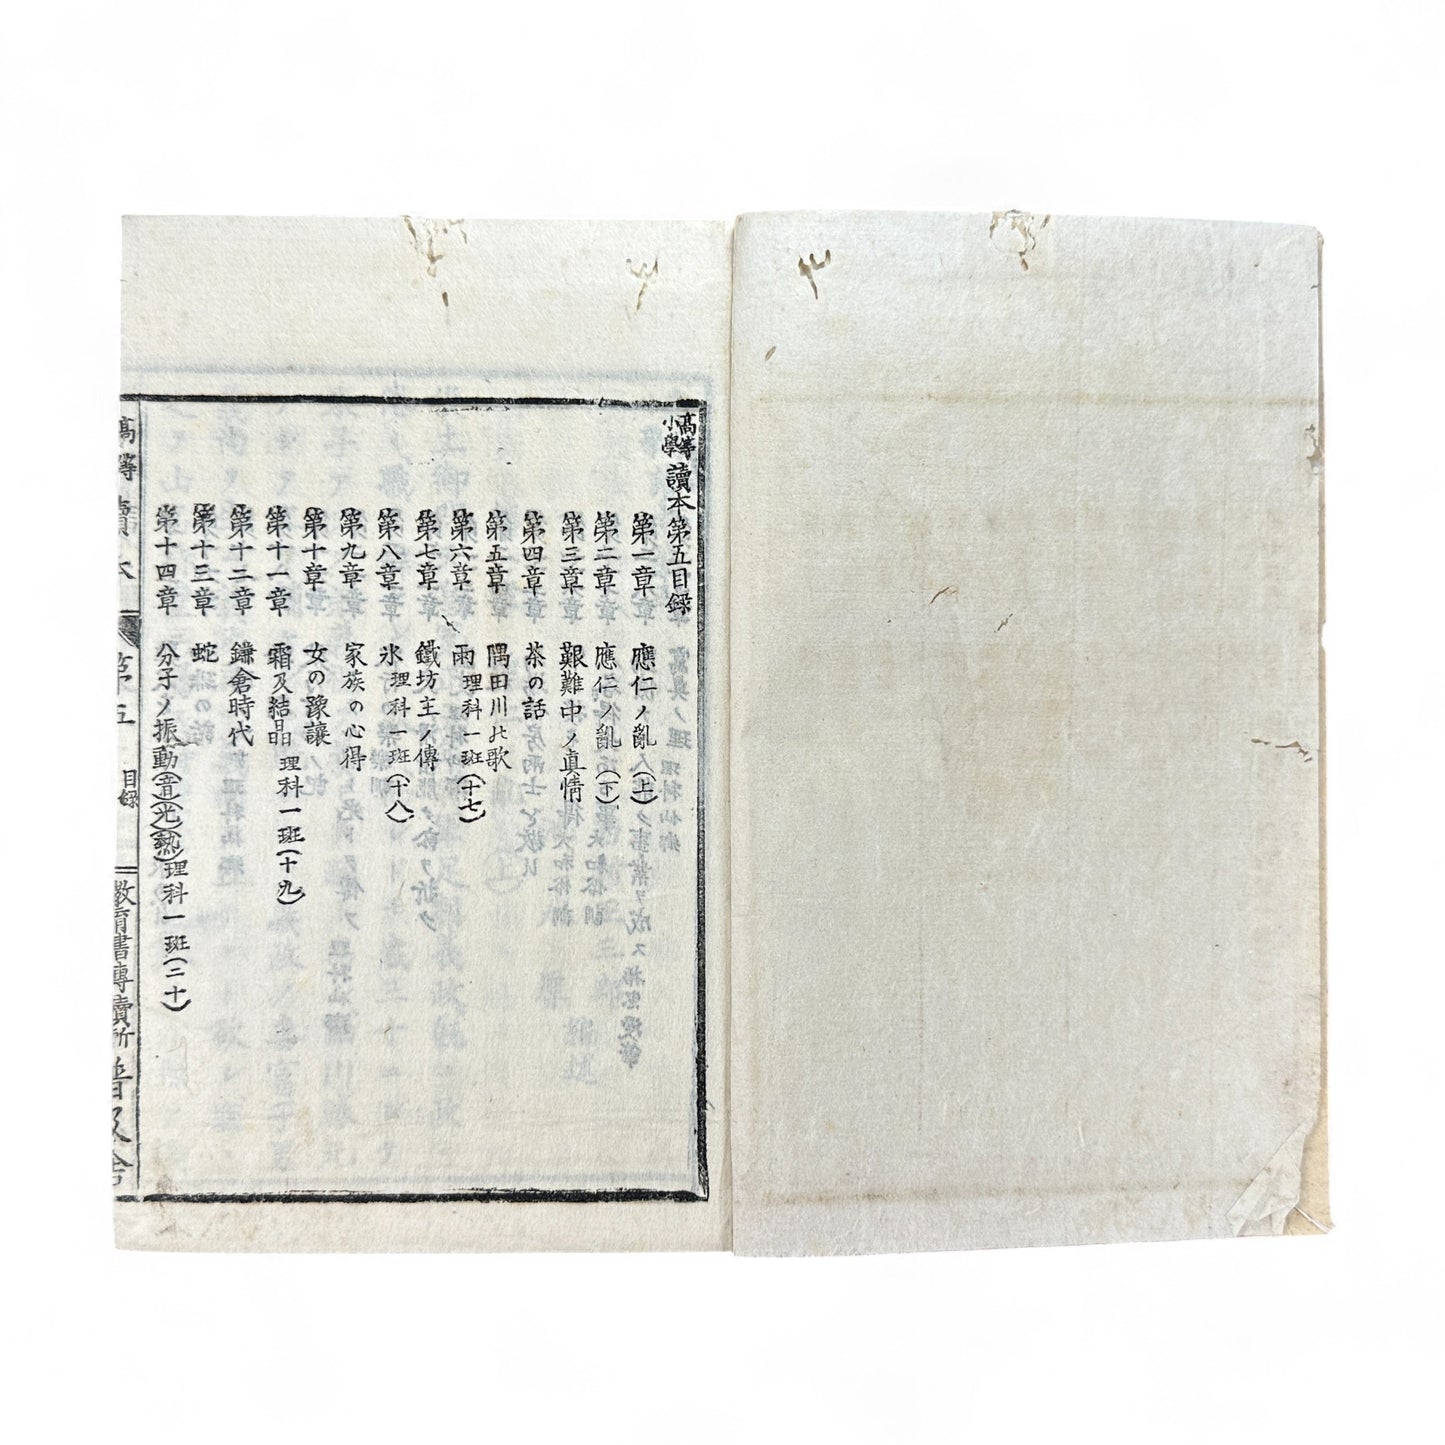 高等小學讀本第五目録
第一章 應仁ノ亂(上)
第二章 應仁ノ亂(下)
第三章 艱難中ノ真情
第四章 茶の話
第五章 隅田川の歌
第六章 雨 理科一班(十七)
第七章 鐵坊主ノ傳
第八章 氷 理科一班(十八)
第九章 家族の心得
第十章 女の豫讓
第十一章 霜及結晶 理科一班(十九)
第十二章 鎌倉時代
第十三章 蛇
第十四章 分子ノ振動(音)(光)(熱)理科一班(二十)
高等讀本 第五 目録 教育書専賣所 普及舎